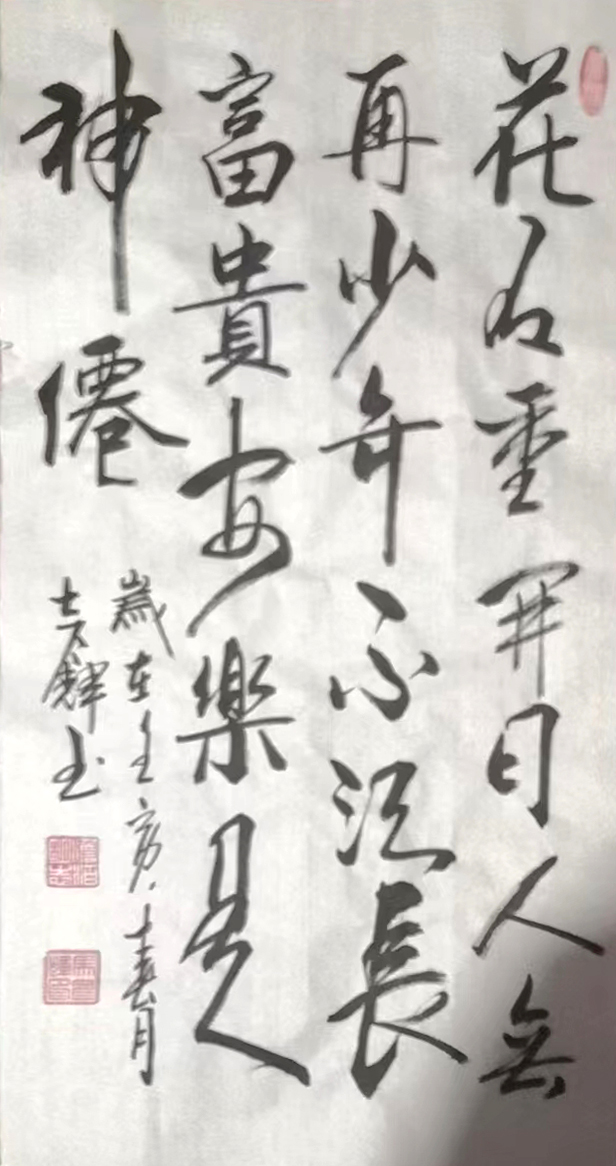 花有重開日人無
再少年不須長
富貴安樂是
神僊
歲在壬寅春月
輝书